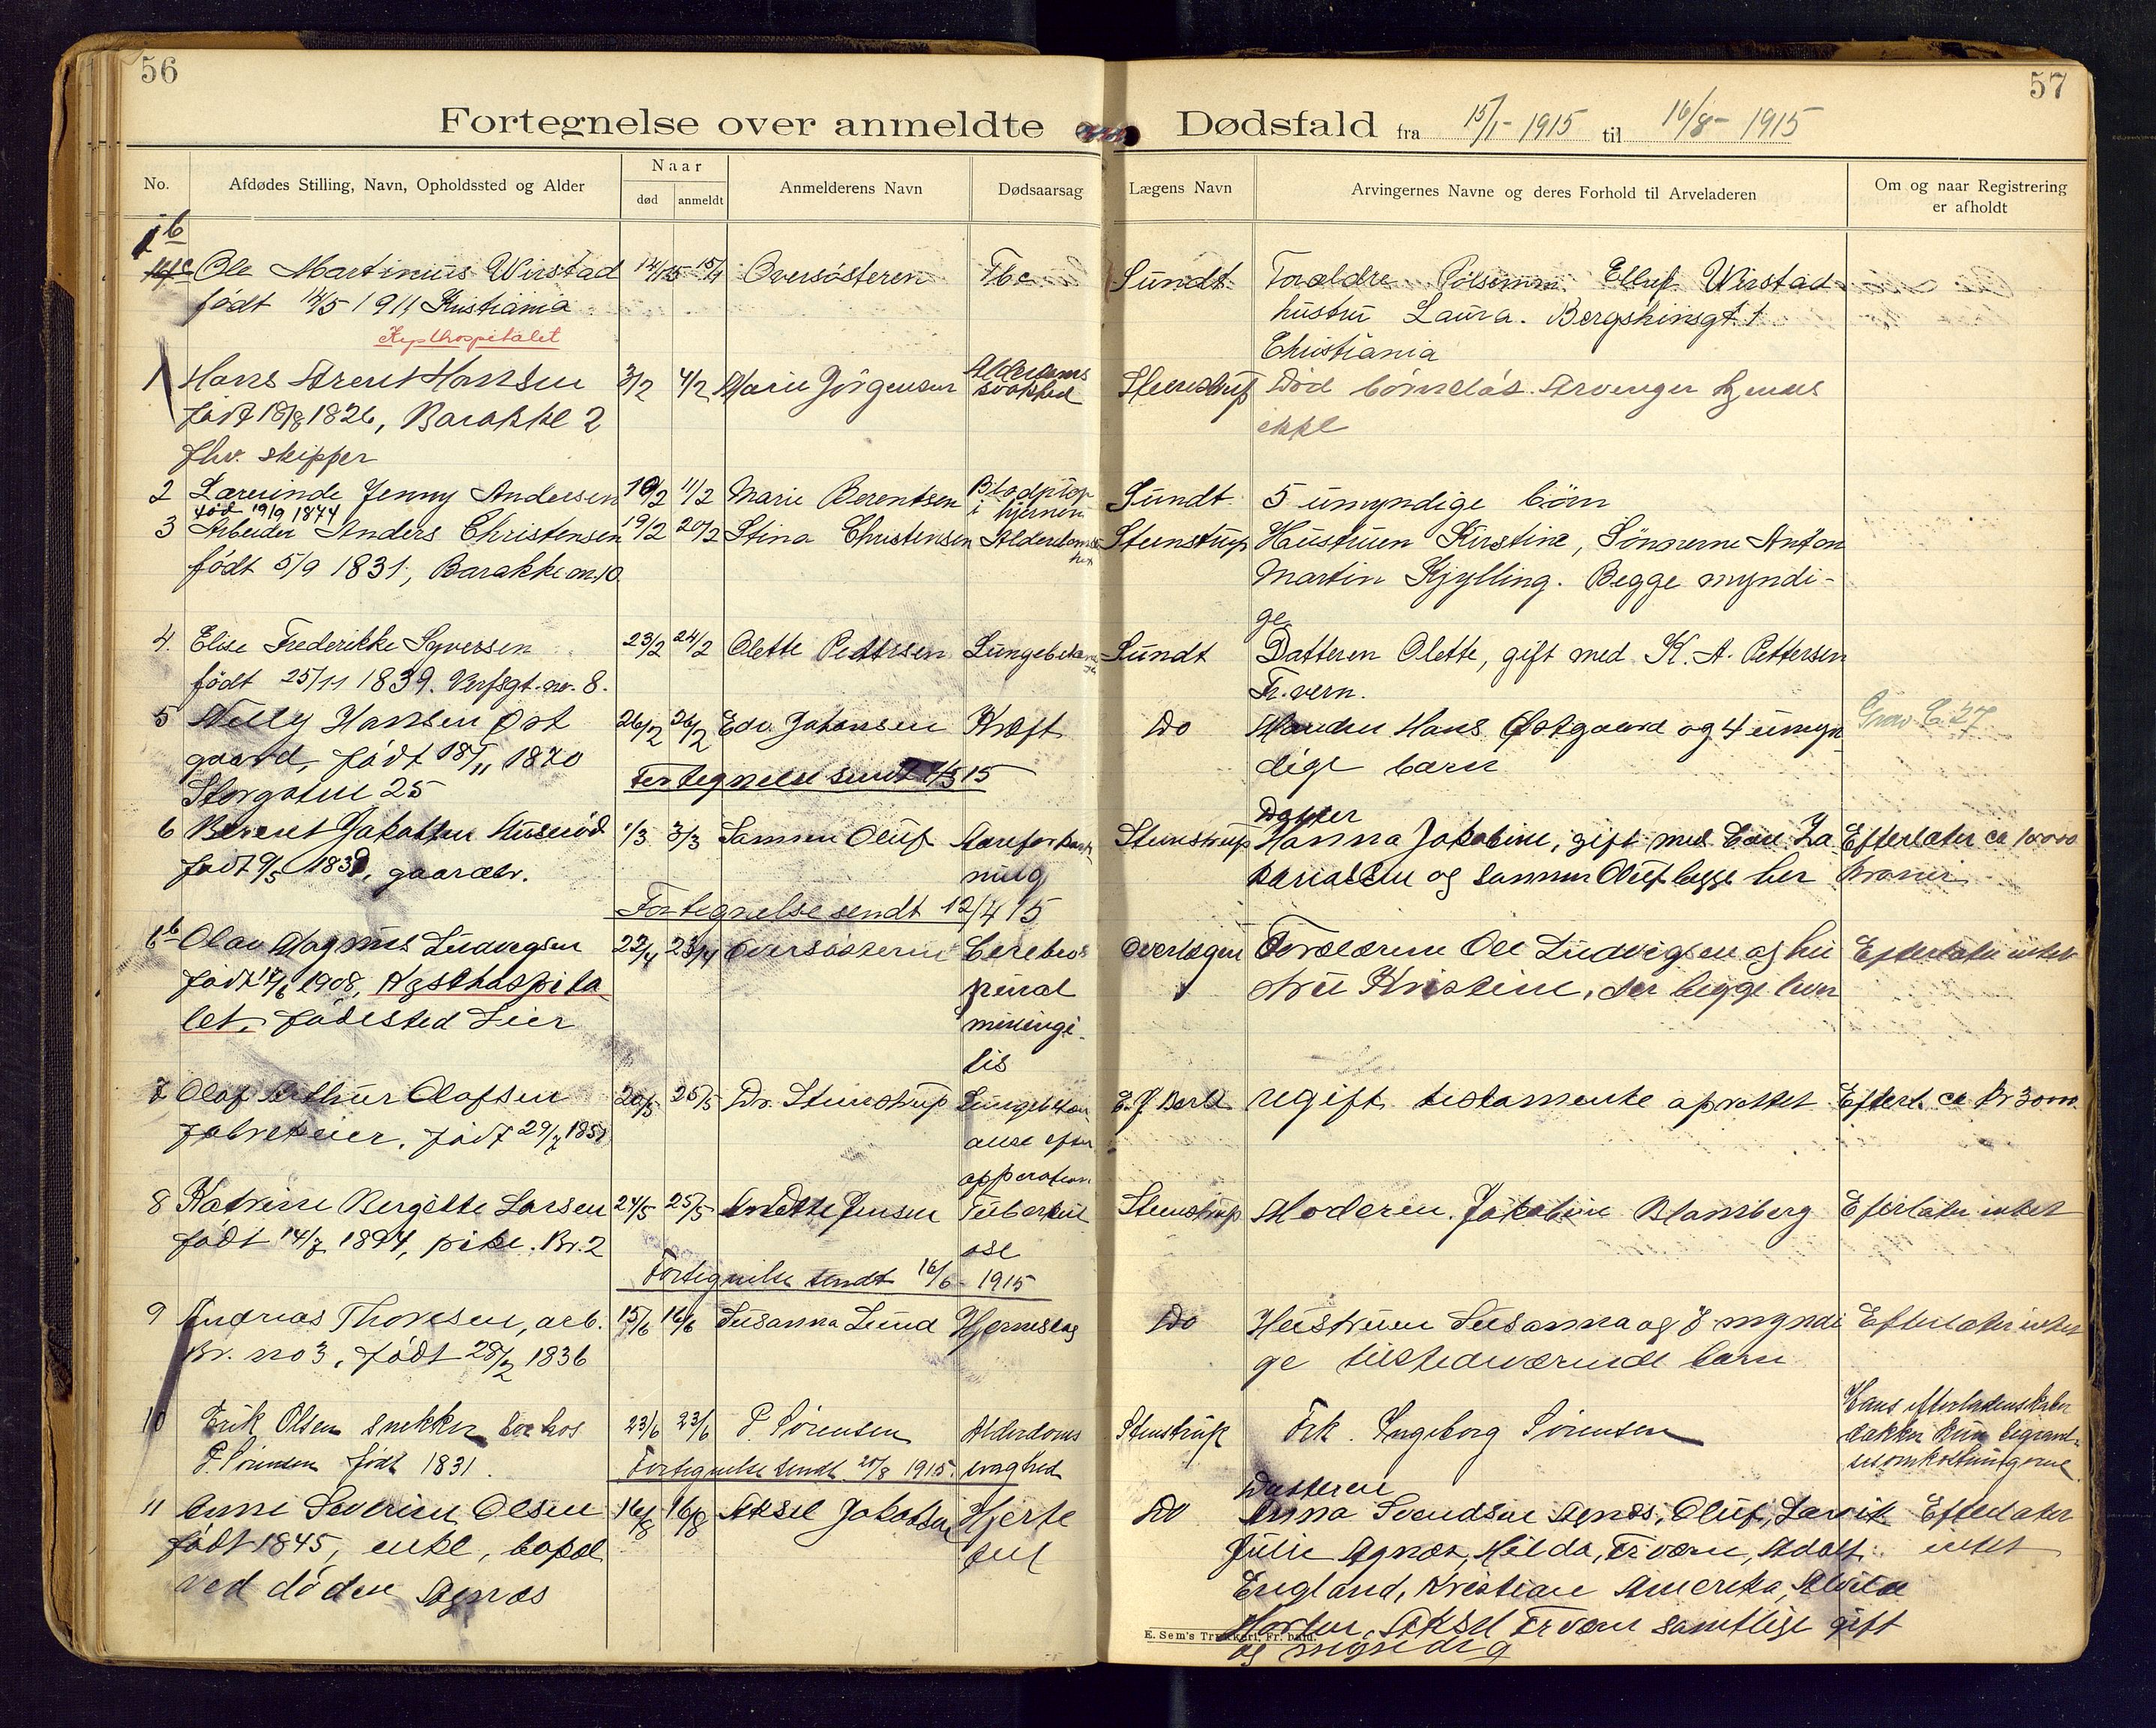 56
57
Fortegnelse over anmeldte Dødsfald fra 15/1-1915 til 16/8-1915
No.
Afdødes Stilling, Navn, Opholdssted og Alder
Naar
død
anmeldt
Anmelderens Navn
Dødsaarsag
Lægens Navn
Arvingernes Navne og deres Forhold til Arveladeren
Om og naar Registrering
er afholdt
1b
Ole Martinius Wirstad 14/1 15 15/1 Oversøsteren Tbc Sundt Forældre Pølsemm. Elluf Wirstad
født 14/5 1911 Kristiania hustru Laura. Bergslinsgt. 1
Kysthospitalet Christiania
1 Hans Arent Hansen 3/2 4/2 Marie Jørgensen Alderdoms Stenstrup Død børneløs. Arvinger kjendes
svakhed
født 18/8 1826, Barakke 2 ikke
fhv. skipper
2 Lærerinde Jenny Andersen 10/2 11/2 Marie Berentsen Blodprop Sundt 5 umyndige børn
i hjernen
født 19/9 1874
3 Arbeider Anders Christensen 19/2 20/2 Stina Christensen Alderdoms Steenstrup Hustruen Kirstine, Sønnerne Anton
født 5/9 1831, Barakke no 10 Martin Kjylling. Begge myndi-
ge
4. Elise Frederikke Syversen 23/2 24/2 Olette Pettersen Sundt Datteren Olette, gift med K. A. Pettersen
født 25/11 1839. Verfsgt. no. 8. Fr.vern.
5 Nelly Hansen Øst 26/2 26/2 Edv. Johansen Kræft Do Manden Hans Østgaard og 4 umyn
gaard, født 18/11 1870 dige børn
Storgaten 25
Fortegnelse sendt 1/3 15
Datter
6 Jakobsen 1/3 3/3 Sønnen Oluf Aareforkalk Stenstrup Hanna Jakobine, gift med Za Efterlater ca 10000
ning
født 9/5, gaardbr. kariassen og sønnen Oluf begge her Kroner
Fortegnelse sendt 12/4 15
6b Olav Magnus Ludvigsen 22/4 23/4 Oversøsteren Cerebros Overlægen Forældrene Ole Ludvigsen og hu Efterlater intet
født 1908, Kysthospita pinal stru Kristine, der begge lever
let, fødested Lier meningi-
tis
7 Olaf Arthur Olafsen 20/5 25/5 Dr. Stenstrup ugift. testamente oprettet Efterl. ca Kr 30000.
født 29/7 efter
opperation
8 Katrine Bergitte Larsen 24/5 25/5 Jensen Tuberkul Stenstrup Moderen. Jakobine Blamberg Efterlater intet
født 14/7 1894, pike. Br. 2 ose
Fortegnelse sendt 16/6 - 1915
9 Andreas Thoresen, arb. 15/6 16/6 Susanna Lund Hjerneslag Do Hustruen Susanna og 7 myndi Efterlater intet
Br. no 3, født 28/2 1836 ge tilstedeværende børn
10 Erik Olsen snekker boe hos 23/6 23/6 P. Sørensen Alderdoms Stenstrup Frk. Ingeborg Sørensen Hans efterladenskaber
P. Sørensen født 1831. svaghed dækker kun begravel-
sesomkostningerne
Fortegnelse sendt 20/8 1915.
Datteren
11 Anne Severine Olsen 16/8 16/8 Aksel Jakobsen Hjerte Do Anna Svendsen Agnes, Oluf, Larvik Efterlater
født 1845, enke, bopæl feil Julie Agnes, Hilda, Frværn, Adolf intet
ved døden Agnes England, Kristian Amerika,
Aksel Frværn samtlige gift
og myndig
E. Sem's Trykkeri, Fr.hald.